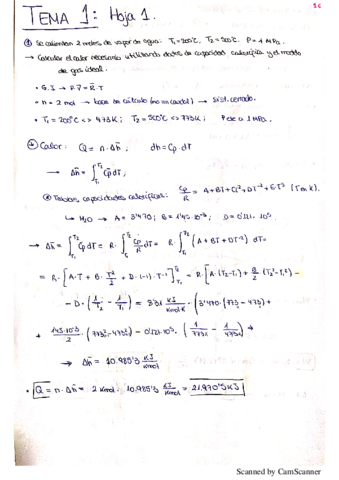 TEMA 1: Hoja 1.
① Se calientan 2 moles de vapor de agua: T₁=200°C, T₂=500°C. P=1 MPa.
→ Calcular el calor necesario utilizando datos de capacidad calorífica y el modelo
de gas ideal.
• G.I → P·V̄ = R·T
• n = 2 mol → base de cálculo (no un caudal) → sist. cerrado.
• T₁ = 200°C <> 473K; T₂ = 500°C <> 773K; P cte a 1 MPa.
Calor: Q = n·Δh̄; dh = Cp·dT
→ Δh̄ = ∫ C̄p dT;
Tablas, capacidades caloríficas: Cp/R = A+BT+CT²+DT⁻²+ET³ (T en K).
↳ H₂O → A = 3'470; B = 1'45·10⁻³; D = 0'121·10⁵
→ Δh̄ = ∫ C̄p dT = R·∫ Cp/R dT = R·∫ (A+BT+DT⁻²) dT =
= R·[A·T + B·T²/2 + D·(-1)·T⁻¹] = R·[A·(T₂-T₁) + B/2 (T₂²-T₁²) -
- D·(1/T₂ - 1/T₁)] = 8'31 kJ/kmol·K · (3'470·(773-473) +
+ 1'45·10⁻³/2 (773²-473²) - 0'121·10⁵·(1/773 - 1/473)) →
→ Δh̄ = 10.985'3 kJ/kmol
• Q = n·Δh̄ = 2 kmol · 10.985'3 kJ/kmol =
Scanned by CamScanner